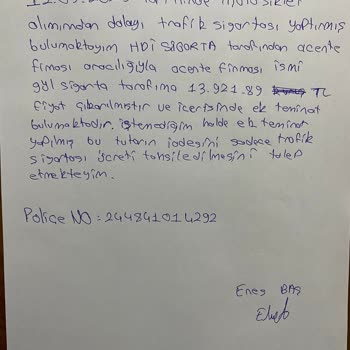 alımından dolayı trafik sigortası yaptırmış
bulunmaktayım HDİ SİGORTA tarafından acente
firması aracılığıyla acente firması ismi
gyl sigorta tarafıma 13.921.89 TL
fiyat çıkarılmıştır ve içerisinde ek teminat
bulunmaktadır. istemediğim halde ek teminat
yapılmış bu tutarın iadesini sadece trafik
sigortası ücreti tahsil edilmesini talep
etmekteyim.
Poliçe NO : 244841014292
Enes BAŞ